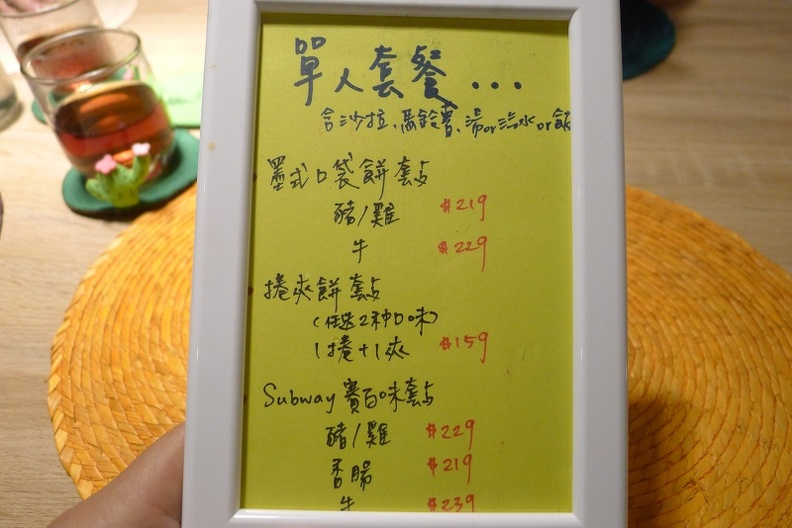 單人套餐...
含沙拉、馬鈴薯、湯or汽水or飲
墨式口袋餅 套點
豬/雞 $219
牛 $229
捲夾餅 套點
(任选2种口味)
1捲+1夾 $159
Subway 賽百味套點
豬/雞 $229
香腸 $219
牛 $239